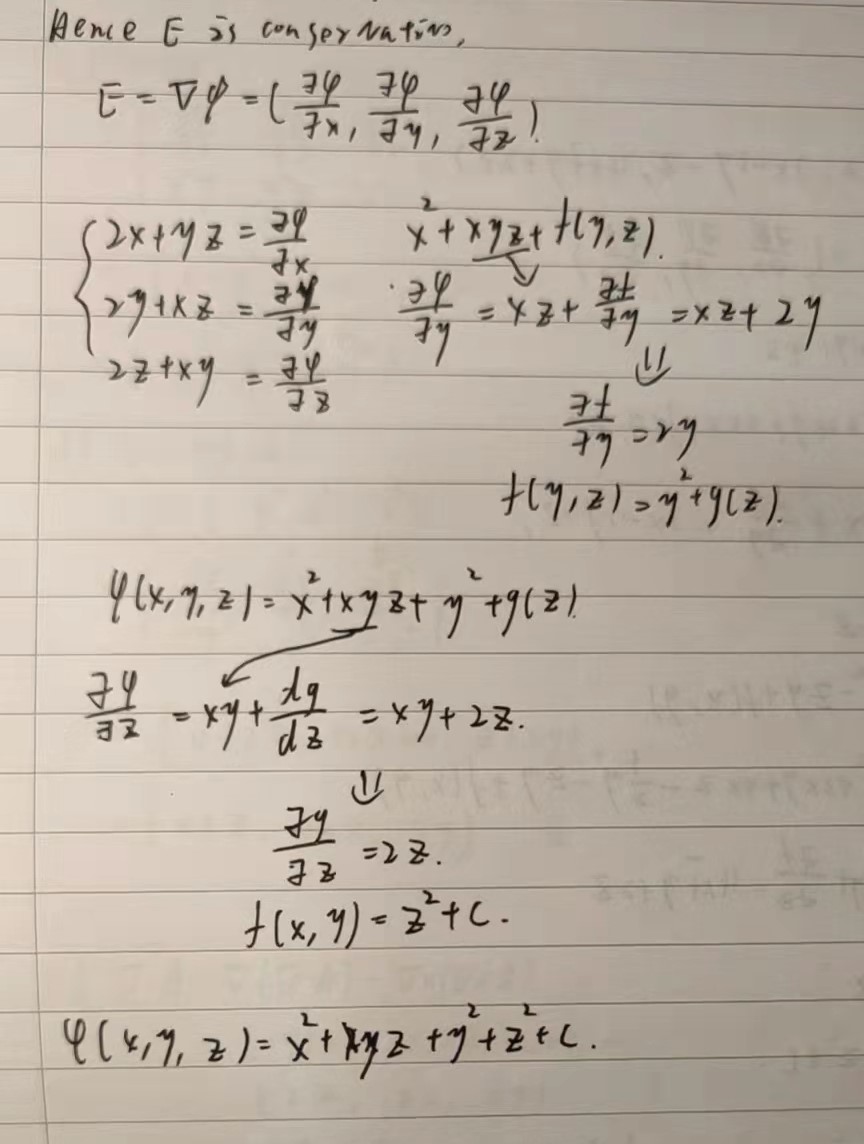 Hence E is conservative,
E = ∇φ = (∂φ/∂x, ∂φ/∂y, ∂φ/∂z)
2x+yz = ∂φ/∂x    x²+xyz+f(y,z).
2y+xz = ∂φ/∂y    ∂φ/∂y = xz + ∂f/∂y = xz + 2y
2z+xy = ∂φ/∂z    ⇓
∂f/∂y = 2y
f(y,z) = y²+g(z).
φ(x,y,z) = x²+xyz+y²+g(z)
∂φ/∂z = xy + dg/dz = xy+2z.
⇓
∂g/∂z = 2z.
f(x,y) = z²+C.
φ(x,y,z) = x²+xyz+y²+z²+C.